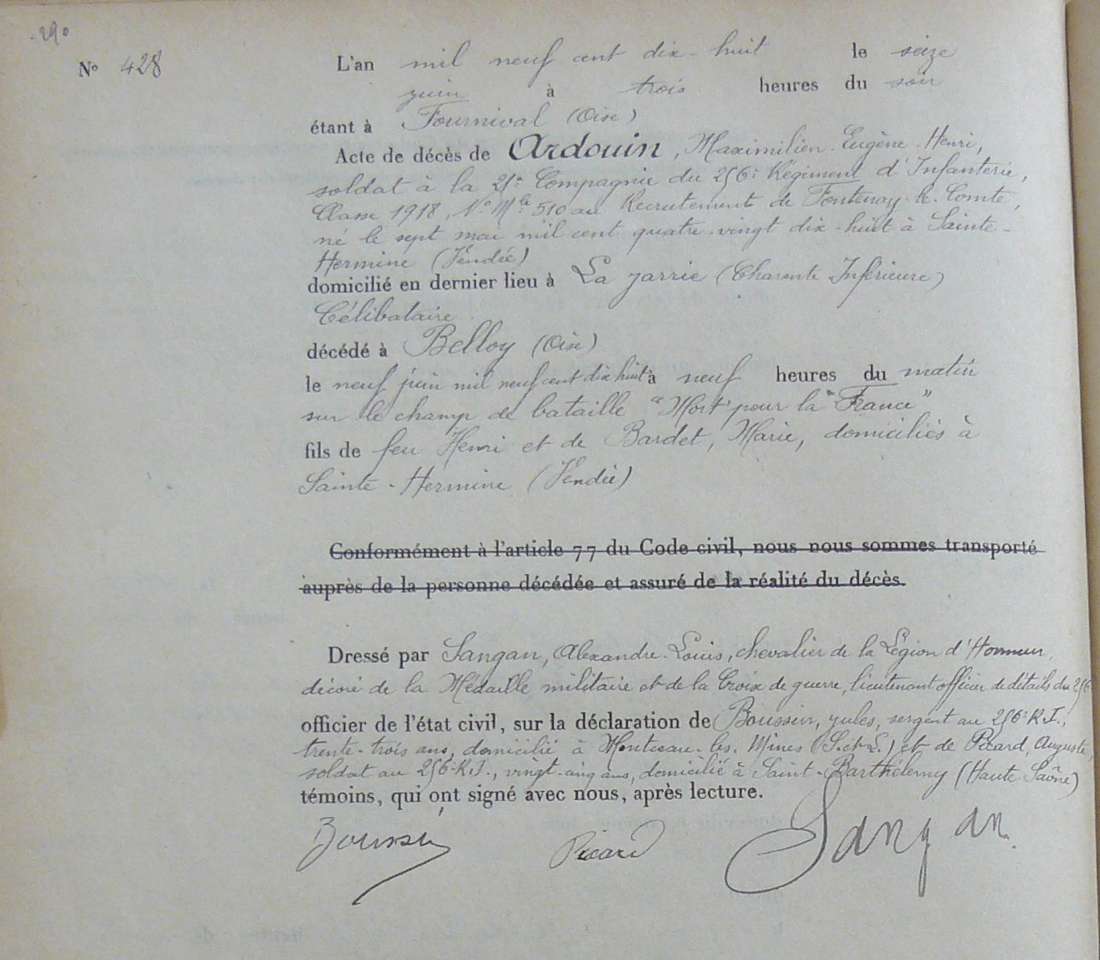 290
N° 428
L'an mil neuf cent dix-huit le seize
juin à trois heures du soir
étant à Fournival (Oise)
Acte de décès de Ardouin, Maximilien-Eugène-Henri,
soldat à la 21e Compagnie du 256e Régiment d'Infanterie,
Classe 1918, N° Mle 510 au Recrutement de Fontenay-le-Comte,
né le sept mai mil cent quatre-vingt dix-huit à Sainte-
Hermine (Vendée)
domicilié en dernier lieu à La Jarrie (Charente Inférieure)
Célibataire
décédé à Belloy (Oise)
le neuf juin mil neuf cent dix huit à neuf heures du matin
sur le champ de bataille "Mort pour la "France"
fils de feu Henri et de Bardet, Marie, domiciliés à
Sainte-Hermine (Vendée)
Conformément à l'article 77 du Code civil, nous nous sommes transporté
auprès de la personne décédée et assuré de la réalité du décès.
Dressé par Sangan, Alexandre-Louis, chevalier de la Légion d'Honneur,
décoré de la Médaille militaire et de la Croix de guerre, lieutenant officier de détails du 256
officier de l'état civil, sur la déclaration de Boussin, Jules, sergent au 256e R.I.,
trente-trois ans, domicilié à Montceau-les-Mines (S.et L.) et de Picard, Auguste,
soldat au 256e R.I., vingt-cinq ans, domicilié à Saint-Barthélemy (Haute Saône)
témoins, qui ont signé avec nous, après lecture.
Boussin Picard Sangan